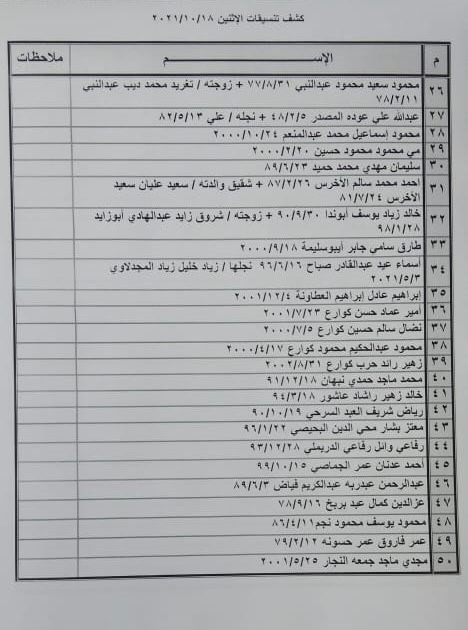 كشف تنسيقات الإثنين ٢٠٢١/١٠/١٨
م الإســـــــم ملاحظات
٢٦ محمود سعيد محمود عبدالنبي ٧٧/٨/٣١ + زوجته / تغريد محمد ديب عبدالنبي
٧٨/٢/١١
٢٧ عبدالله علي عوده المصدر ٤٨/٢/٥ + نجله / علي ٨٢/٥/١٣
٢٨ محمود إسماعيل محمد عبدالمنعم ٢٠٠٠/١٠/٢٤
٢٩ مي محمود محمود حسين ٢٠٠٠/٢/٢٠
٣٠ سليمان مهدي محمد حميد ٨٩/٦/٢٣
٣١ احمد محمد سالم الأخرس ٨٧/٢/٢٦ + شقيق والدته / سعيد عليان سعيد
الأخرس ٨١/٧/٢٤
٣٢ خالد زياد يوسف أبوندا ٩٠/٩/٣٠ + زوجته / شروق زايد عبدالهادي أبوزايد
٩٨/١/٢٨
٣٣ طارق سامي جابر أبيوسليمة ٢٠٠٠/٩/١٨
٣٤ أسماء عيد عبدالقادر صباح ٩٦/٦/١٦ نجلها / زياد خليل زياد المجدلاوي
٢٠٢١/٥/٣
٣٥ إبراهيم عادل إبراهيم العطاونة ٢٠٠١/١٢/٤
٣٦ أمير عماد حسن كوارع ٢٠٠١/٧/٢٣
٣٧ نضال سالم حسين كوارع ٢٠٠٠/٧/٥
٣٨ محمود عبدالحكيم محمود كوارع ٢٠٠٠/٤/١٧
٣٩ زهير رائد حرب كوارع ٢٠٠٢/٨/٣١
٤٠ محمد ماجد حمدي نبهان ٩١/١٢/١٨
٤١ خالد زهير راشاد عاشور ٩٤/٣/١٨
٤٢ رياض شريف العبد السرحي ٩٠/١٠/١٩
٤٣ معتز بشار محي الدين البحيصي ٩٦/١/٢٢
٤٤ رفاعي وائل رفاعي الدريملي ٩٣/١٢/٢٨
٤٥ احمد عدنان عمر الجماصي ٩٩/١٠/١٥
٤٦ عبدالرحمن عبدربه عبدالكريم فياض ٨٩/٦/٣
٤٧ عزالدين كمال عبد بربخ ٧٨/٩/١٦
٤٨ محمود يوسف محمود نجم ٨٦/٤/١١
٤٩ عمر فاروق عمر حسونه ٧٩/٢/١٢
٥٠ مجدي ماجد جمعه النجار ٢٠٠١/٥/٢٥